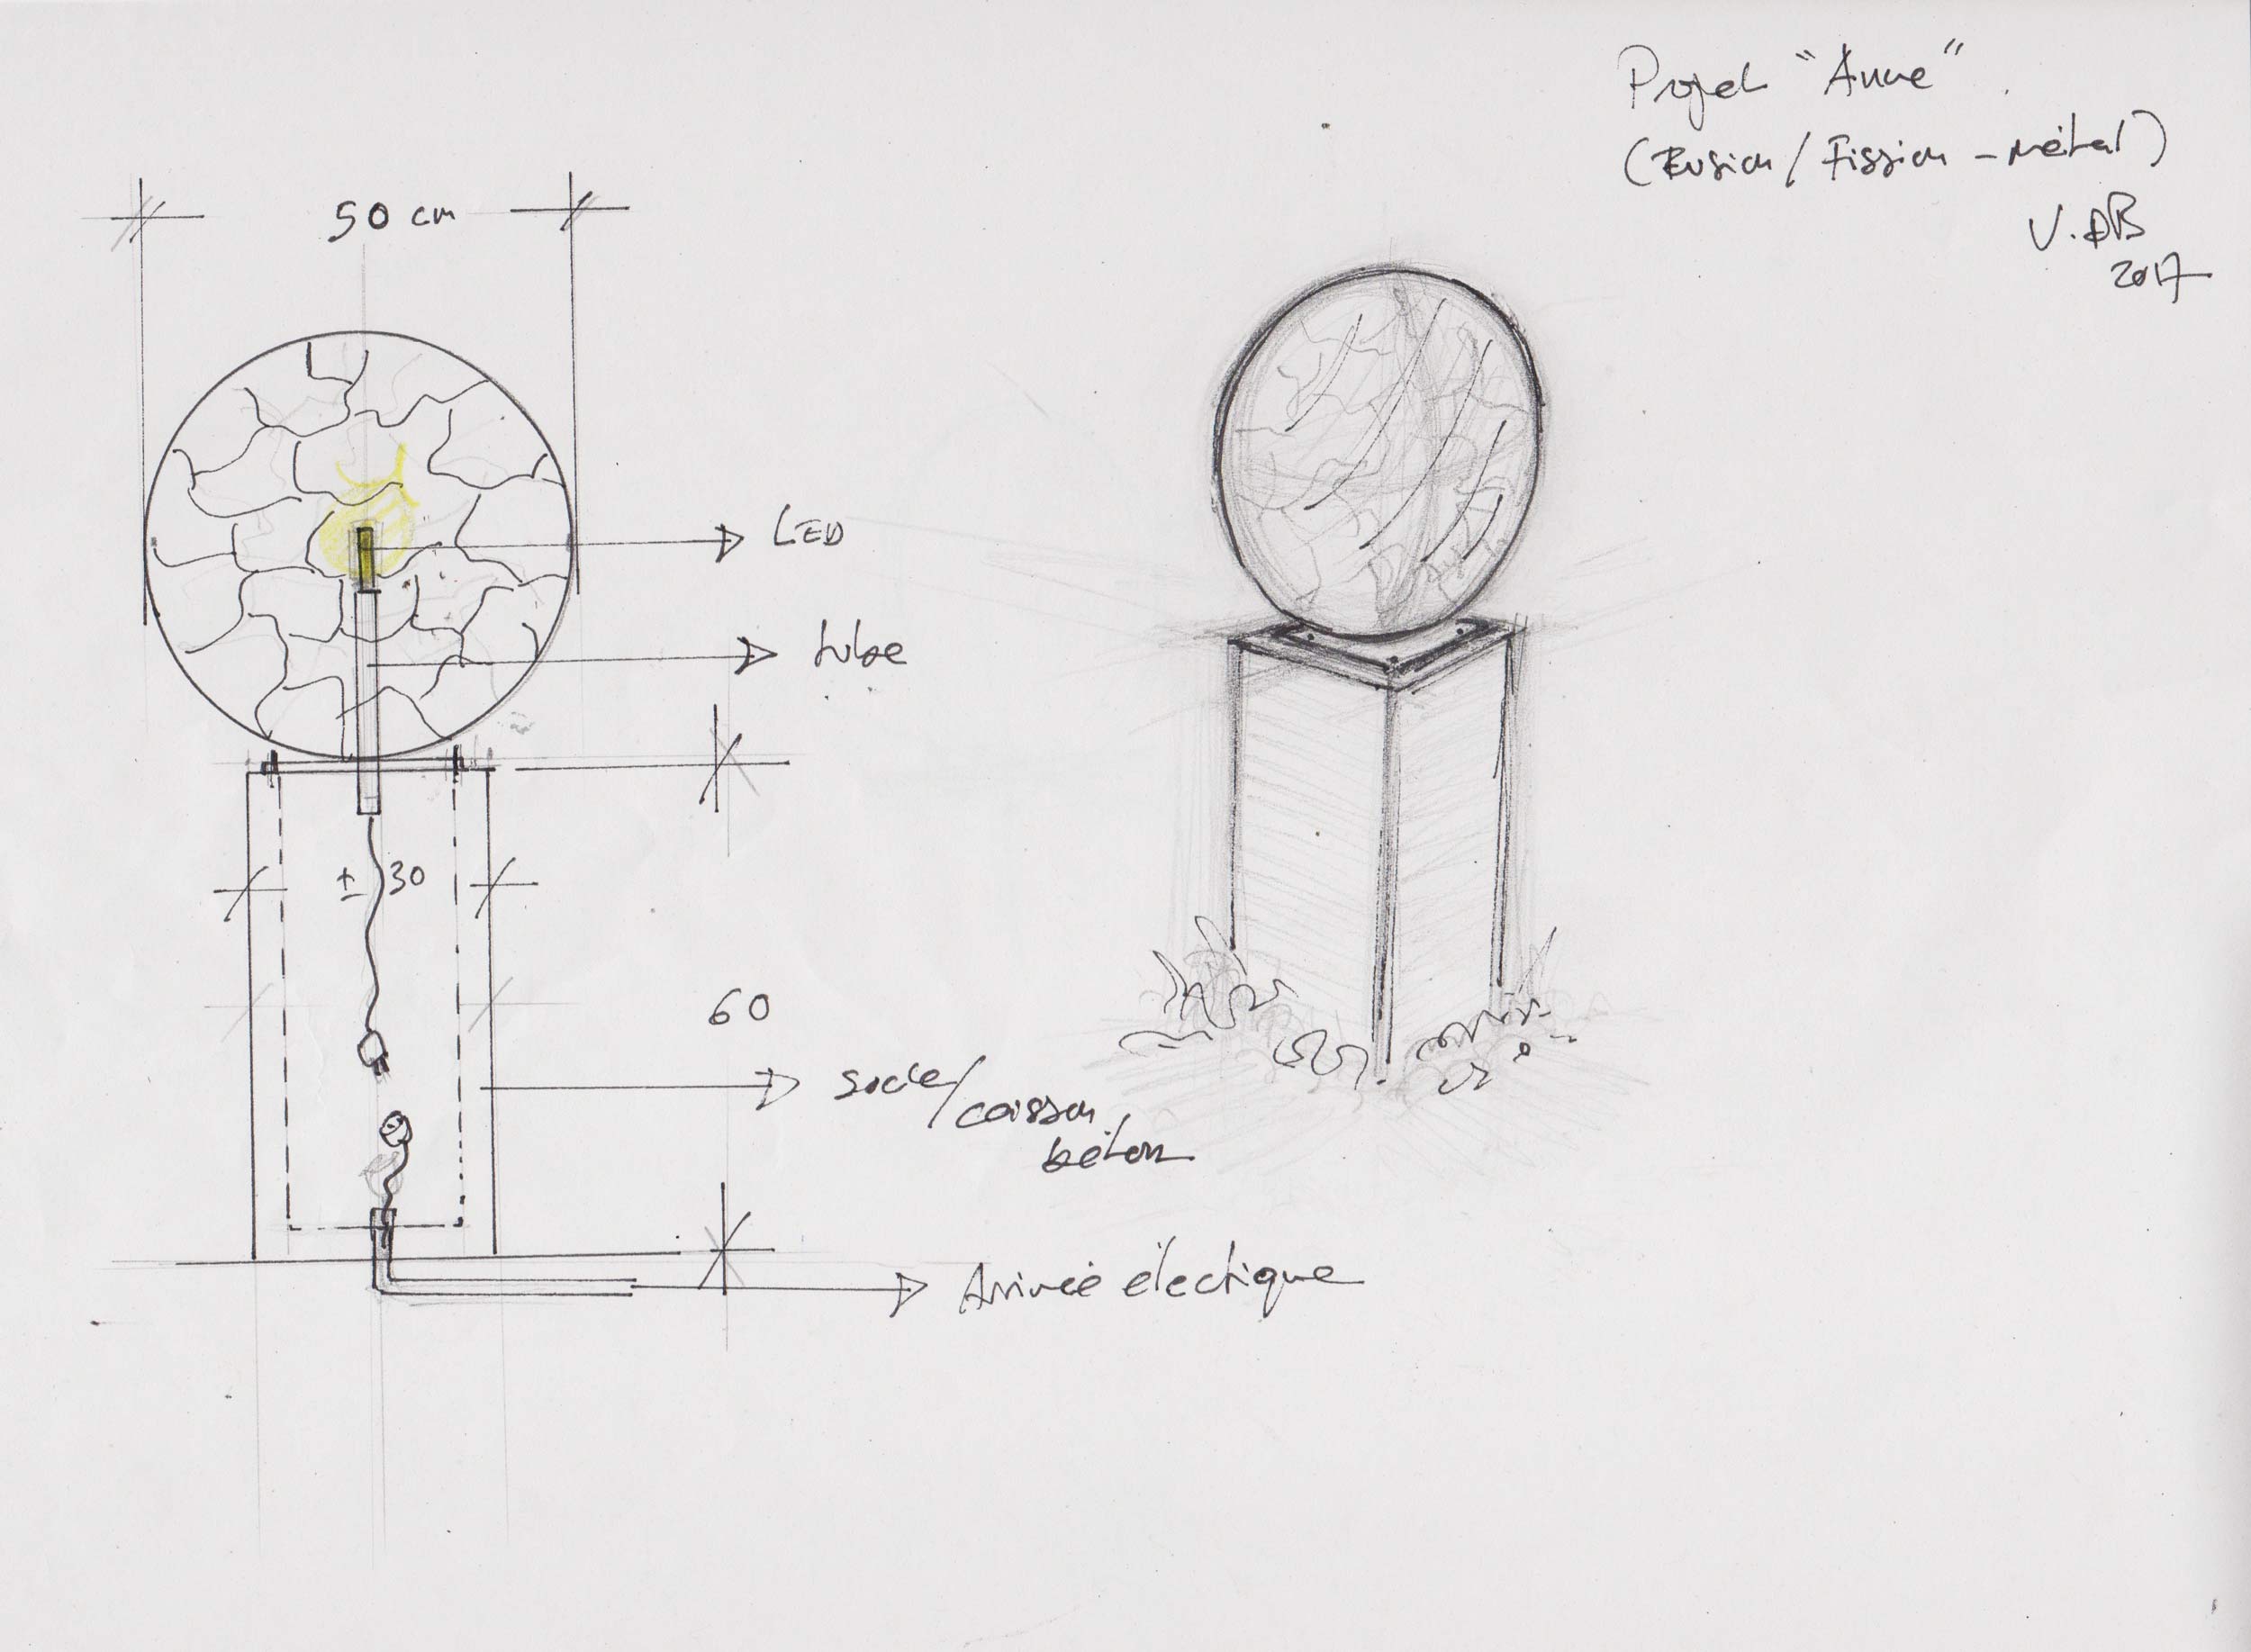 Projet "Anne"
(Fusion/Fission - métal)
V.DB
2017
50 cm
LED
tube
± 30
60
socle/
caisson
béton
Arrivée électique